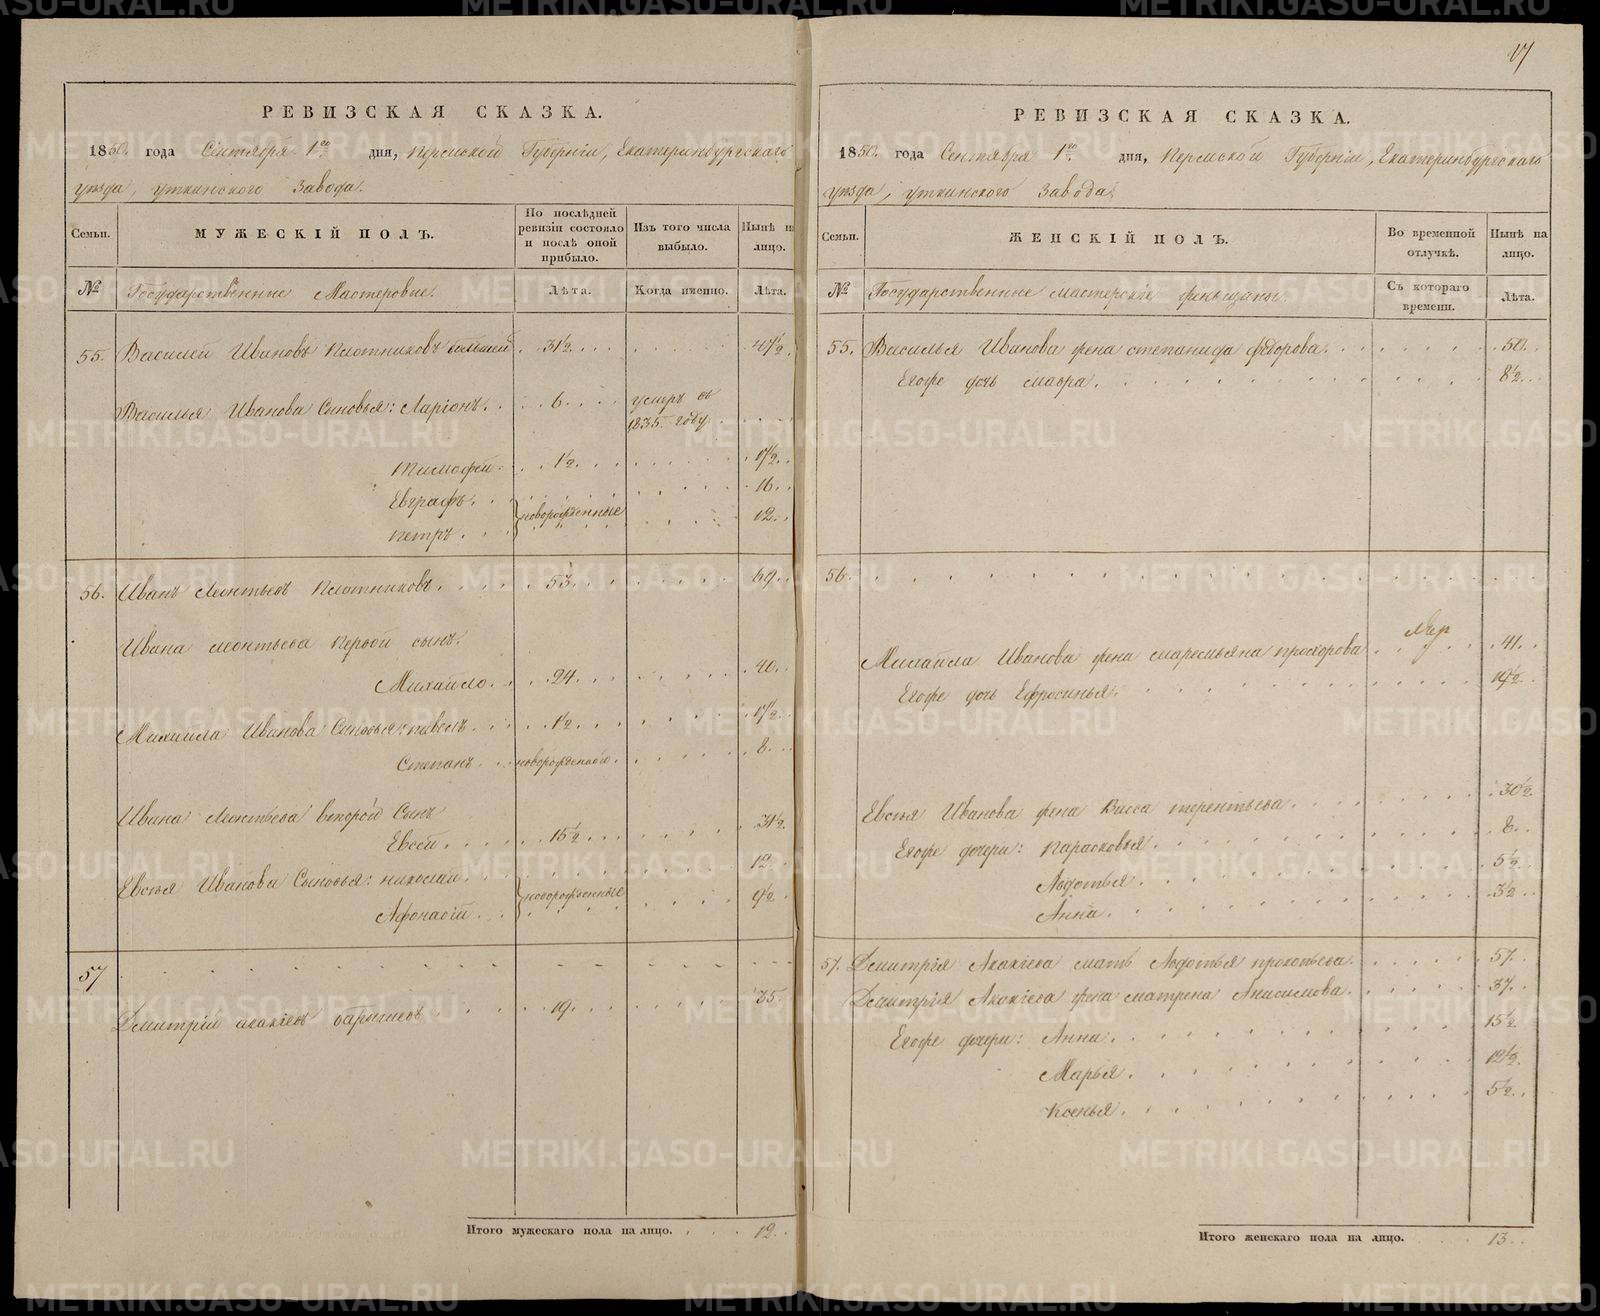 17
РЕВИЗСКАЯ СКАЗКА.
1850. года Сентября 1го. дня, Пермской Губерніи, Екатеринбургскаго
уѣзда, уткинского Завода.
Семьи.
МУЖЕСКІЙ ПОЛЪ.
По послѣдней ревизіи состояло и послѣ оной прибыло.
Изъ того числа выбыло.
Нынѣ на лицо.
№
Государственные Мастеровые.
Лѣта.
Когда именно.
Лѣта.
55. Василей Ивановъ Плотниковъ большей . 31½ . . . 47½.
Василья Иванова Сыновья: Ларіонъ . . 6 . . . умеръ въ
1835. году
Тимофей . . 1½ . . . 17½ . .
Евграфъ . . новорожденные . . . 16 . .
Петръ . . . 12 . .
56. Иванъ Леонтьевъ Плотниковъ . . . 53 . . . 69 . .
Ивана леонтьева Первой сынъ.
Михайло . . 24 . . . 40 . .
Михайла Иванова Сыновья: павелъ . . . 1½ . . . 17½ . .
Степанъ . . новорожденной . . . 8 . .
Ивана Леонтьева второй Сынъ
Евсей . . . 15½ . . . 31½.
Евсея Иванова Сыновья: николай . . новорожденные . . . 12 . .
Афонасій . . . 9½ . .
57
Дмитрій акакіевъ . . . 19 . . . 35 . .
Итого мужескаго пола на лицо. . . . 12 . .
РЕВИЗСКАЯ СКАЗКА.
1850. года Сентября 1го. дня, Пермской Губерніи, Екатеринбургскаго
уѣзда, уткинского Завода.
Семьи.
ЖЕНСКІЙ ПОЛЪ.
Во временной отлучкѣ.
Нынѣ на лицо.
№
Государственные мастерскіе женьщины.
Съ котораго времени.
Лѣта.
55. Василья Иванова жена степанида федорова . . . 50 . .
Егоже дочь мавра . . . 8½ . .
56.
Михайла Иванова жена маремьяна прохорова . . . 41 . .
Егоже дочь Ефросинья . . . 14½ . .
Евсея Иванова жена Васса терентьева . . . 30½.
Егоже дочери: Парасковья . . . 8 . .
Авдотья . . . 5½ . .
Анна . . . 3½ . .
57. Дмитрія Акакіева мать Авдотья прокопьева . . . 57 . .
Дмитрія Акакіева жена матрена Анисимова . . . 37 . .
Егоже дочери: Анна . . . 15½
Марья . . . 12½.
Ксенья . . . 5½ . .
Итого женскаго пола на лицо. . . . 13 . .
METRIKI.GASO-URAL.RU